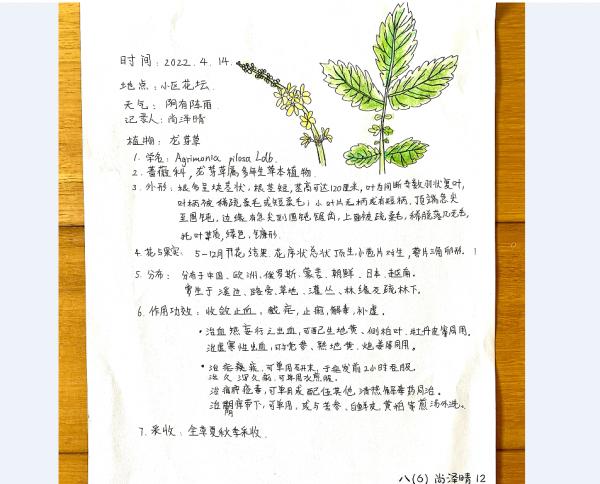 时间：2022.4.14.
地点：小区花坛.
天气：阴有阵雨
记录人：尚泽晴
植物：龙芽草
1. 学名：Agrimonia pilosa Ldb.
2. 蔷薇科，龙芽草属多年生草本植物.
3. 外形：根多呈块茎状，根茎短，茎高可达120厘米，叶为间断奇数羽状复叶，
叶柄被稀疏柔毛或短柔毛；小叶片无柄或有短柄，顶端急尖
至圆钝，边缘有急尖到圆钝锯齿，上面被疏柔毛，稀脱落几无毛，
托叶草质，绿色，镰形.
4. 花与果实：5-12月开花，结果.花序状总状顶生，小苞片对生，萼片三角卵形.
5. 分布：分布于中国、欧洲、俄罗斯、蒙古、朝鲜、日本、越南.
常生于溪边、路旁、草地、灌丛、林缘及疏林下.
6. 作用功效：收敛止血，截疟，止痢，解毒，补虚.
• 治血热妄行之出血，可配生地黄、侧柏叶、牡丹皮等同用.
治虚寒性出血，可与党参、熟地黄、炮姜等同用.
• 治疟疾，可单用研末，于疟发前2小时吞服.
治久泻久痢，可单用水煎服.
治痈肿疮毒，可单用或配伍其他，清热解毒药同治.
治阴痒带下，可单用，或与苦参、白鲜皮、黄柏等煎汤外洗.
7. 采收：全草夏秋季采收.
八(6) 尚泽晴 12